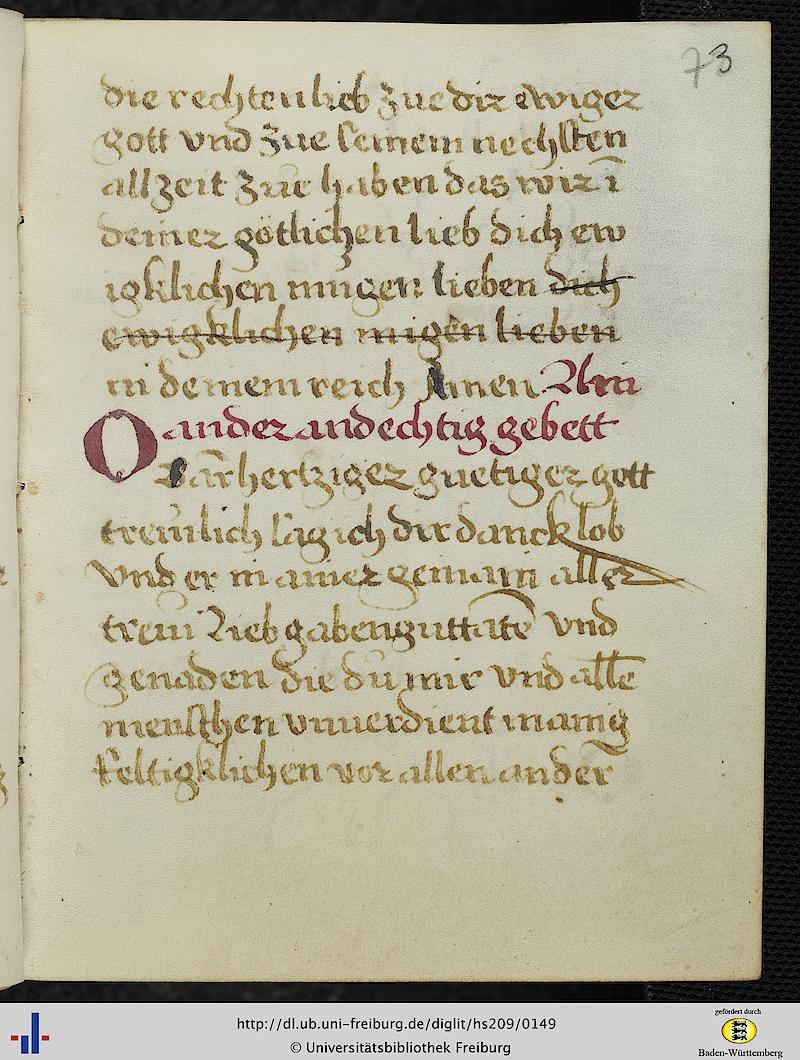 73
die rechten lieb zue dir ewiger
gott vnd zue seinem nechsten
allzeit zue haben das wir ī
deiner götlichen lieb dich ew
igklichen mügen lieben dich
ewigklichen migen lieben
in deinem reich Amen Ain
ander andechtig gebett
O Barhertziger guetiger gott
trewlich sag ich dir danck lob
vnd er in ainer gemain aller
trew lieb gaben guttatē vnd
genaden die du mir vnd allē
menschen vnuerdient manig
feltigklichen vor allen ander
http://dl.ub.uni-freiburg.de/diglit/hs209/0149
© Universitätsbibliothek Freiburg
gefördert durch
Baden-Württemberg